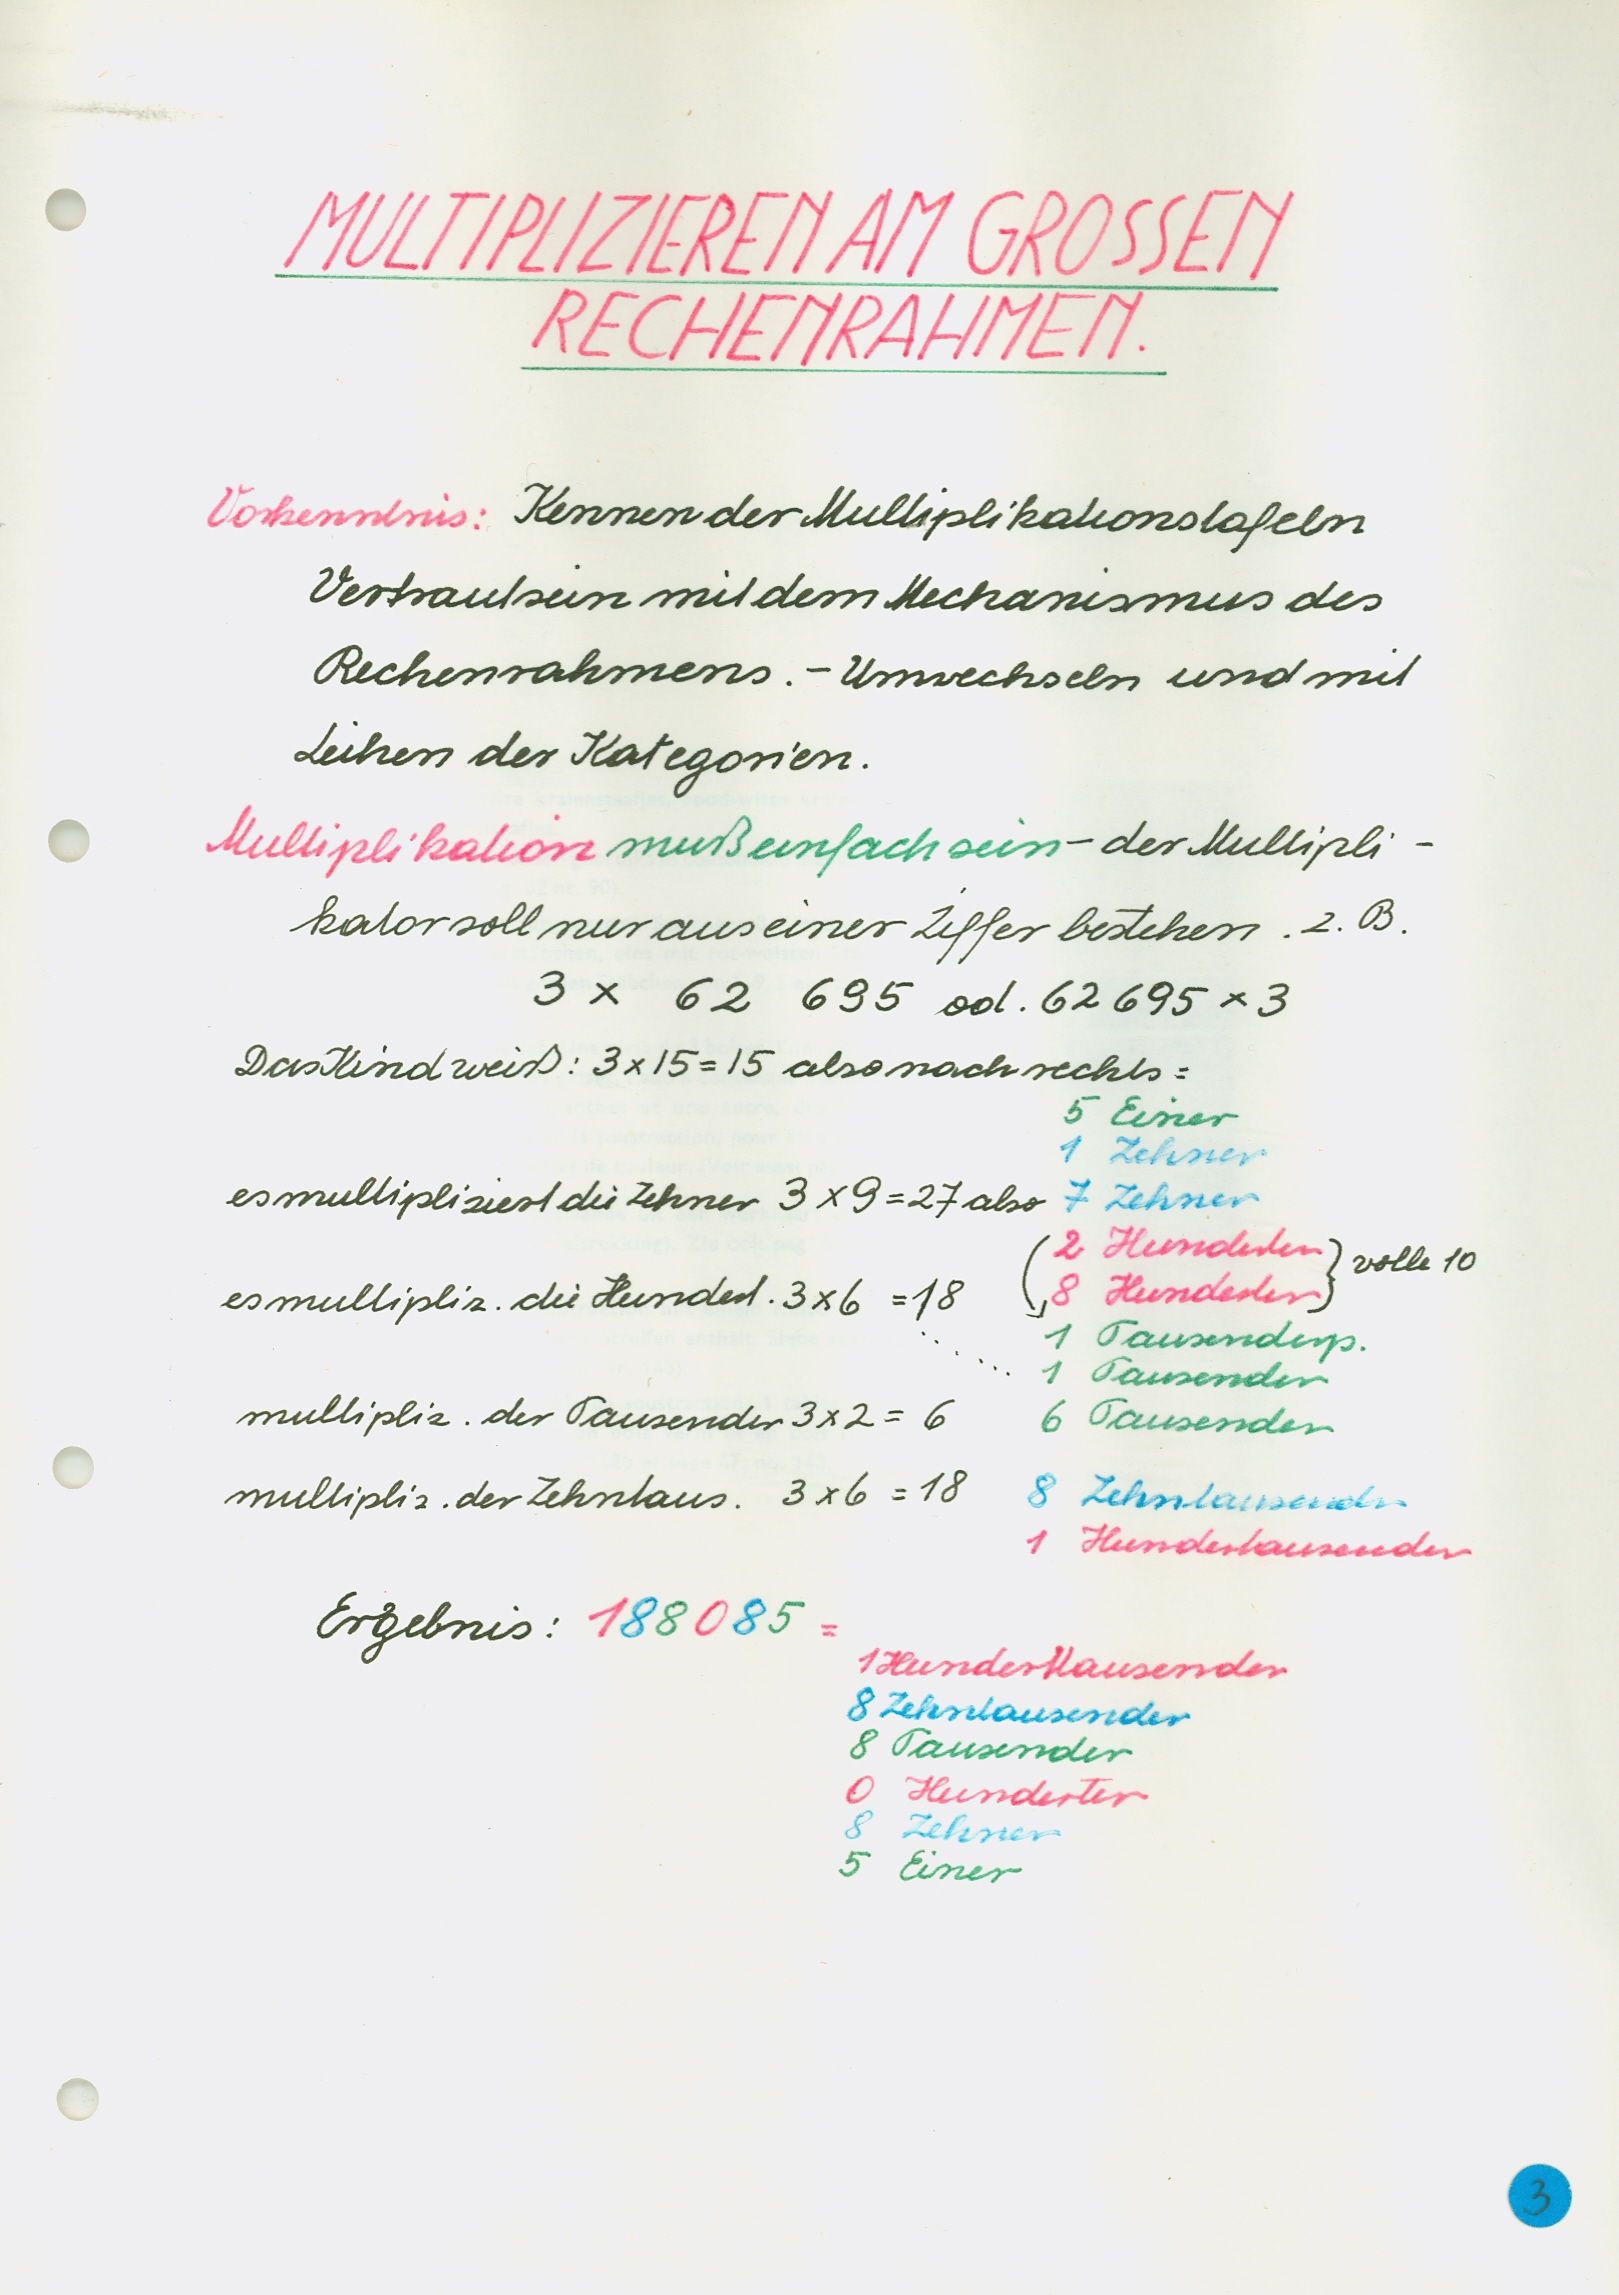 MULTIPLIZIEREN AM GROSSEN
RECHENRAHMEN.
Vorkenntnis: Kennen der Multiplikationstafeln
Vertrautsein mit dem Mechanismus des
Rechenrahmens. – Umwechseln und mit
Leihen der Kategorien.
Multiplikation muß einfach sein – der Multipli –
kator soll nur aus einer Ziffer bestehen. z. B.
3 x 62 695 od. 62 695 x 3
Das Kind weiß: 3 x 15 = 15 also nach rechts =
5 Einer
1 Zehner
es multipliziert die Zehner 3 x 9 = 27 also 7 Zehner
2 Hunderter
volle 10
es multipliz. die Hundert. 3 x 6 = 18 8 Hunderter
1 Tausenderp.
1 Tausender
multipliz. der Tausender 3 x 2 = 6 6 Tausender
multipliz. der Zehntaus. 3 x 6 = 18 8 Zehntausender
1 Hunderttausender
Ergebnis: 188085 =
1 Hunderttausender
8 Zehntausender
8 Tausender
0 Hunderter
8 Zehner
5 Einer
3